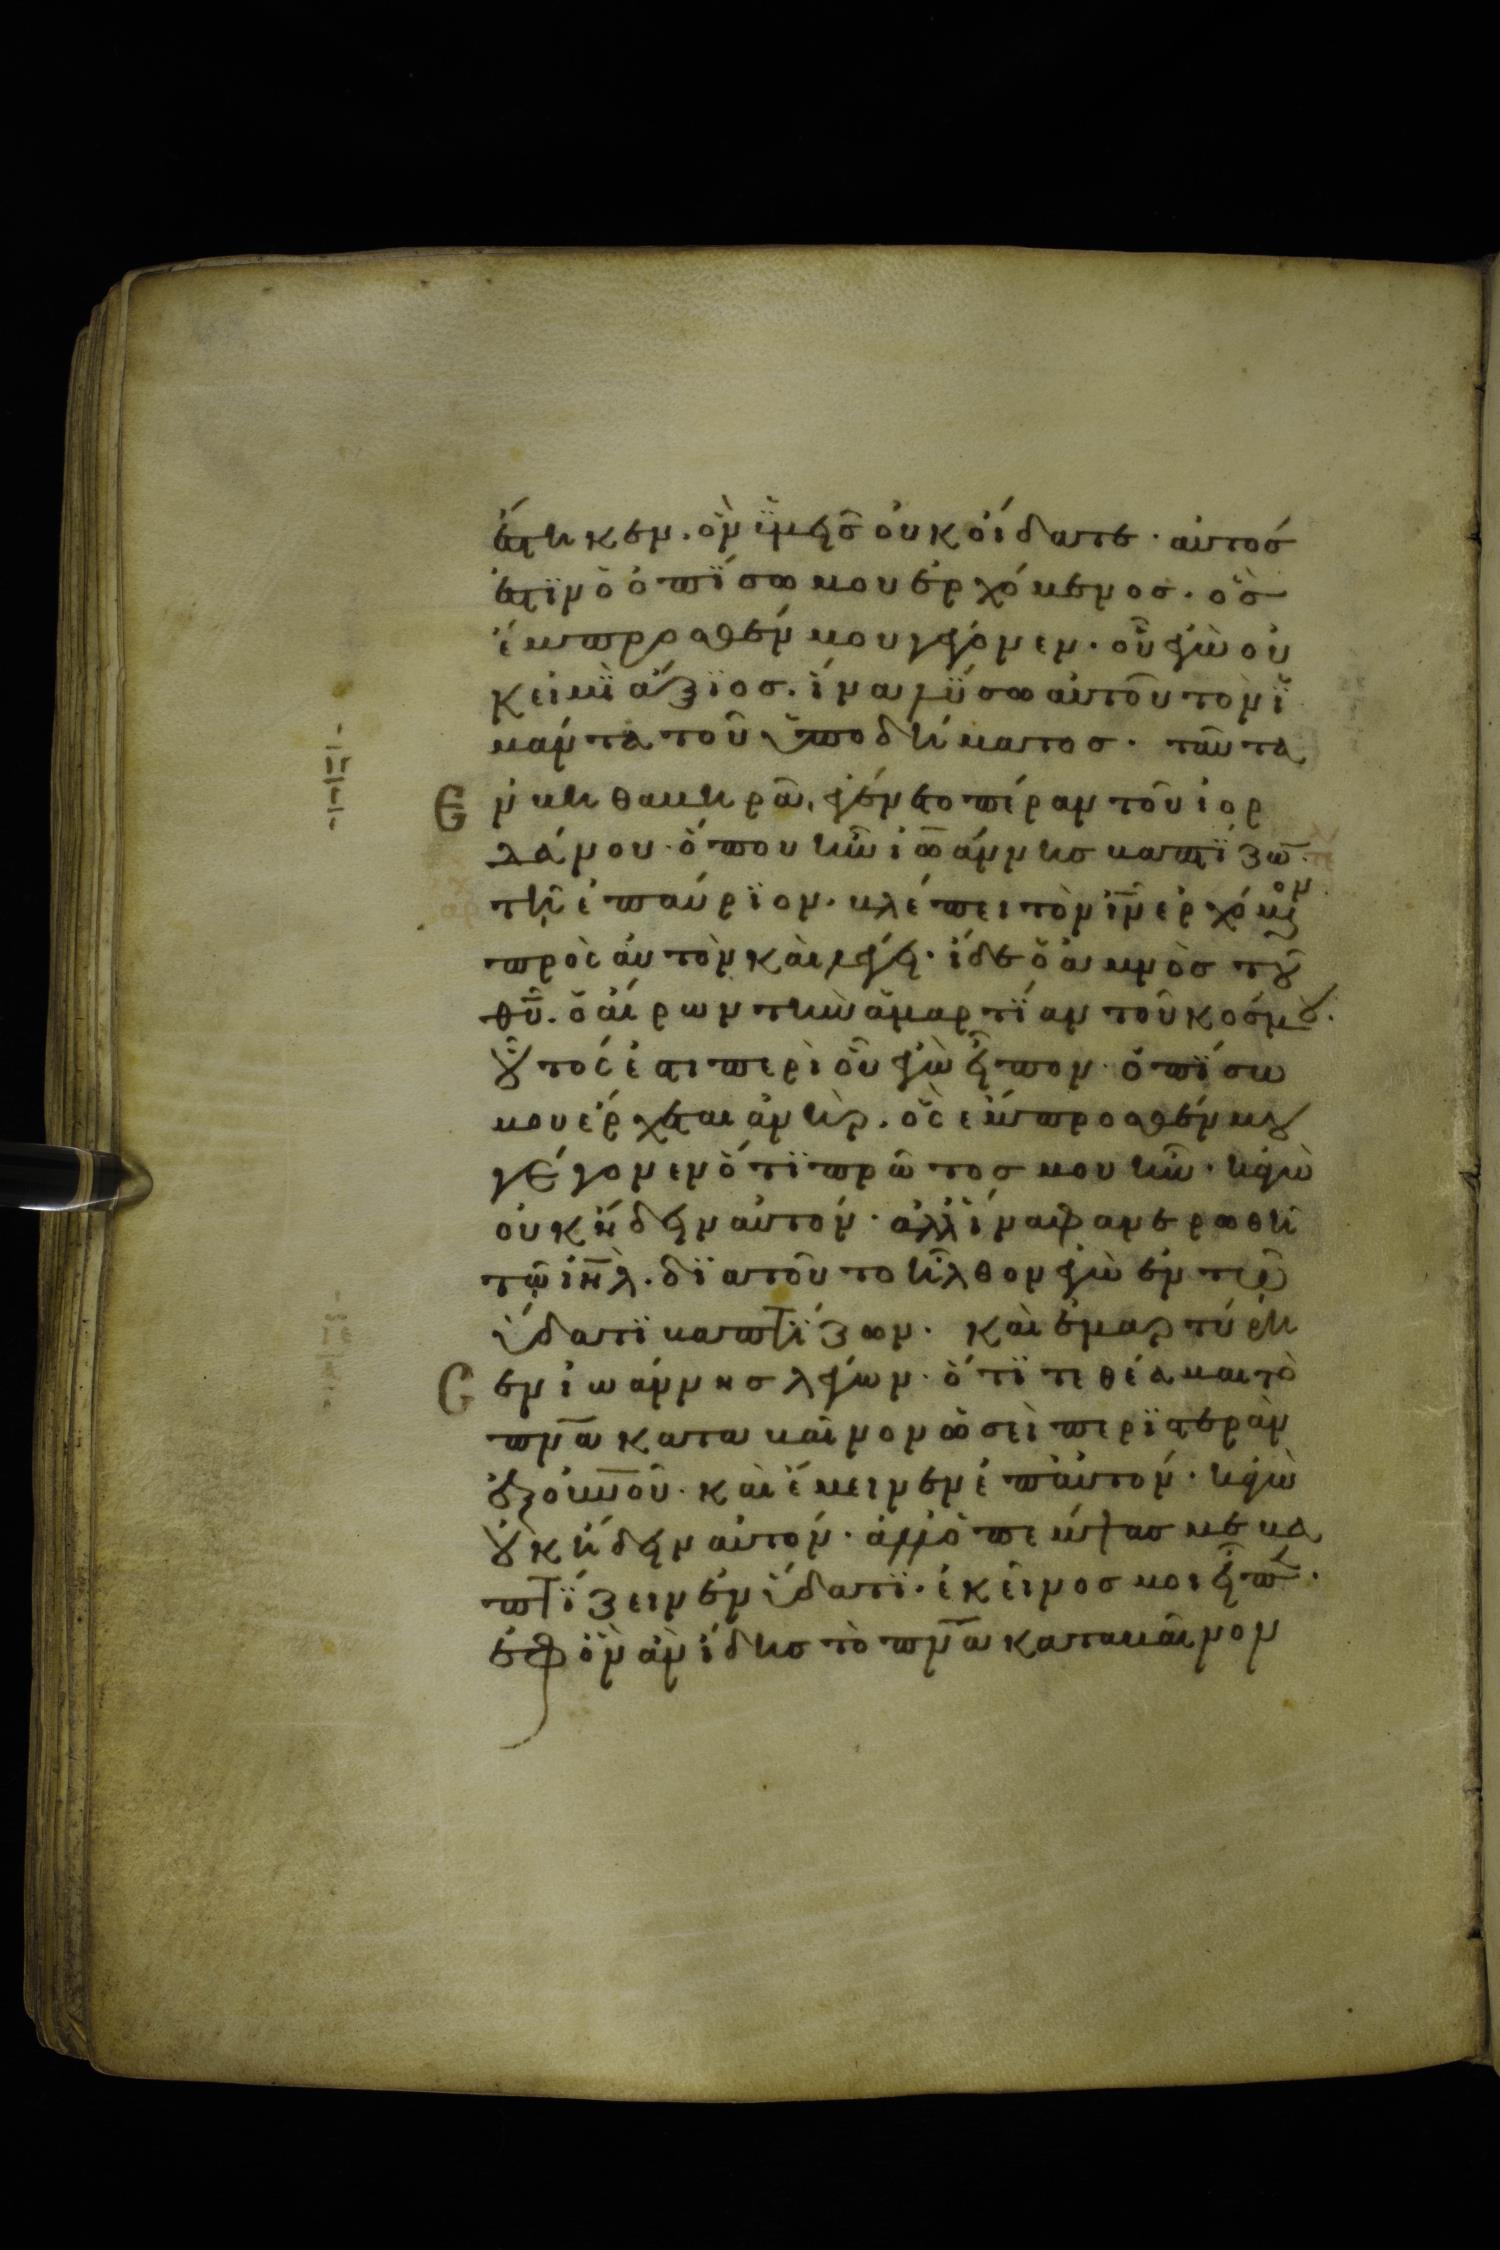 ἕστηκεν. ὃν ὑμεῖς οὐκ οἴδατε· αὐτός
ἐστϊν ὁ ὀπΐσω μου ἐρχόμενος. ὃς
ἔμπροσθέν μου γέγονεν. οὗ ἐγὼ οὐ
κ εἰμῒ ἄξϊος. ἵνα λΰσω αὐτοῦ τὸν ϊ
μάντα τοῦ ὑποδήματος. ταῦτα
Ε ν βηθαβηρᾶ, ἐγένετο πέραν τοῦ ἰορ
δάνου. ὅπου ἦν ἰωάννης βαπτΐζω̅.
τῆ ἐπαύρϊον. βλέπει τὸν ι̅ν̅ ἐρχόμεν
ον
πρὸς αὐτὸν καὶ λέγει. ἴδε ὁ ἀμνὸς τοῦ
θ̅υ̅. ὁ αἴρων τὴν ἁμαρτΐαν τοῦ κόσμου.
οὗτός ἐστι περὶ οὗ ἐγὼ εἶπον. ὀπΐσω
μου ἔρχεται ἀνὴρ. ὃς ἔμπροσθέν μου
γέγονεν ὅτϊ πρῶτός μου ἦν. κἀγὼ
οὐκ ἤδειν αὐτόν. ἀλλ' ἵνα φανερωθῆ
τῶ ι̅η̅λ̅. δϊατοῦτο ἦλθον ἐγὼ ἐν τῶ
ὕδατϊ βαπτΐζων. καὶ ἐμαρτύρη
Ε σεν ἰωάννης λέγων. ὅτϊ τεθέαμαι τὸ
π̅ν̅α̅ καταβαῖνον ὡσεὶ περϊστερὰν
ἐξ οὐ̅ν̅οῦ. καὶ ἔμεινεν ἐπ' αὐτόν. κἀγὼ
οὐκ ἤδειν αὐτόν. ἀλλ' ὁ πέμψας με βα
πτΐζειν ἐν ὕδατϊ. ἐκεῖνός μοι εἶπε̅.
ἐφ' ὃν ἂν ἴδης τὸ π̅ν̅α̅ καταβαῖνον